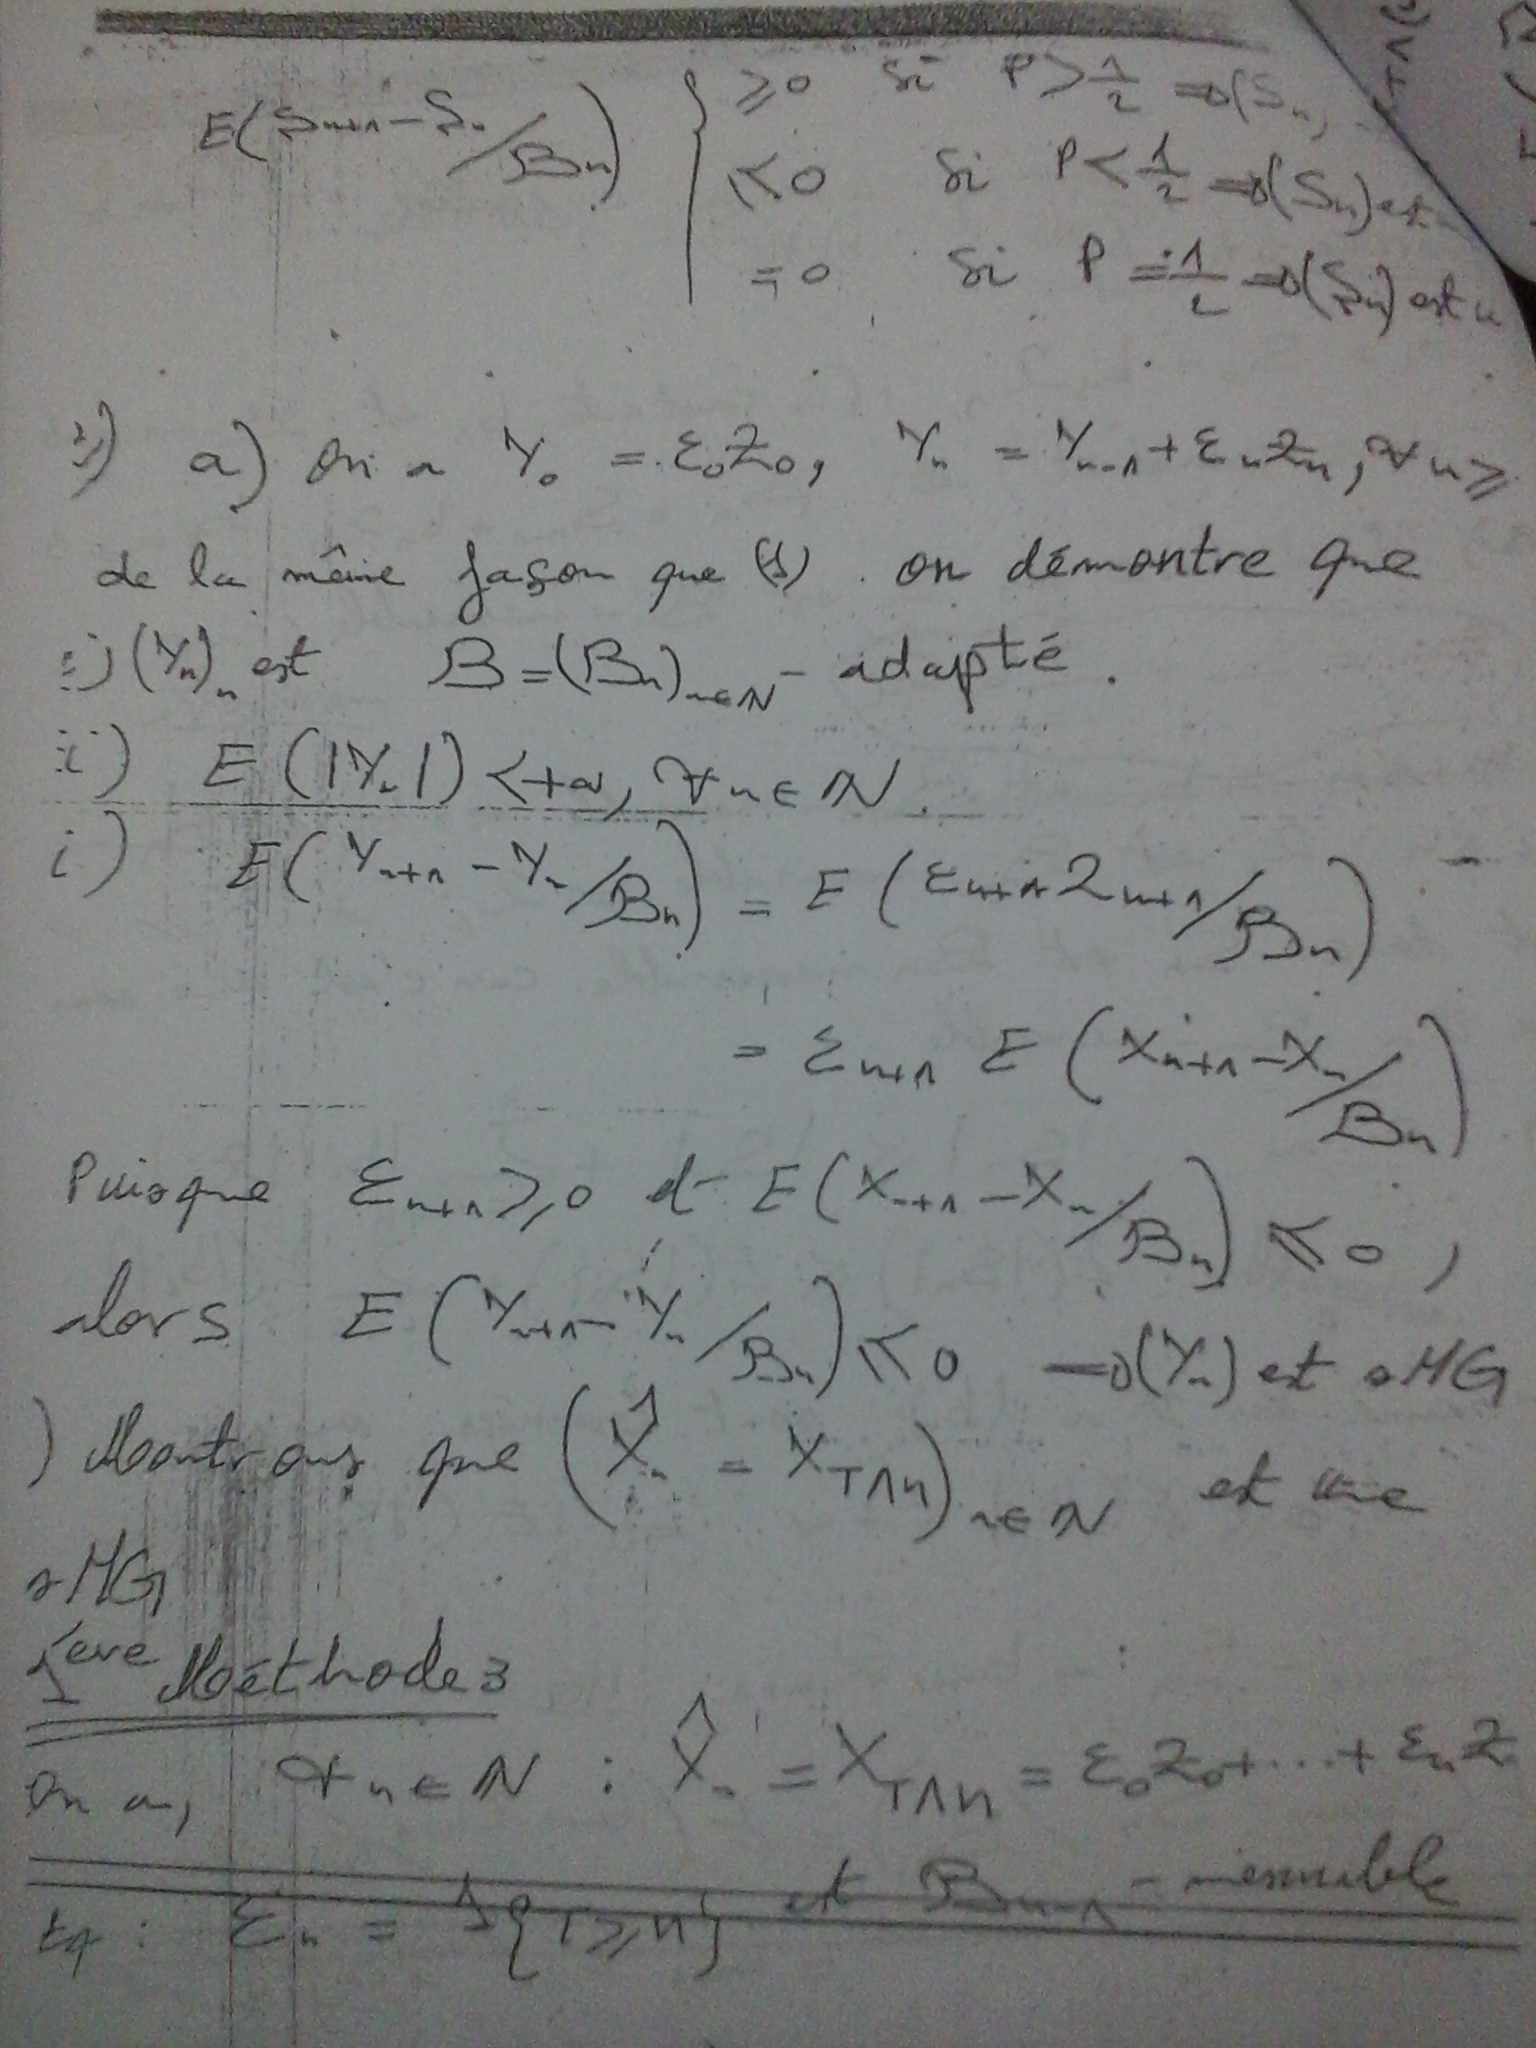 E(Sn+1 - Sn / Bn) { ≥ 0 si P > 1/2 ⇒ (Sn)
≤ 0 si P < 1/2 ⇒ (Sn) est
= 0 si P = 1/2 ⇒ (Sn) est u
2) a) On a Y0 = ε0Z0, Yn = Yn-1 + εnZn, ∀n ≥
de la même façon que (1). on démontre que
i) (Yn)n est B = (Bn)n∈N - adapté.
ii) E(|Yn|) < +∞, ∀n ∈ N.
i) E(Yn+1 - Yn / Bn) = E(εn+1 Zn+1 / Bn)
= εn+1 E(Xn+1 - Xn / Bn)
Puisque εn+1 ≥ 0 et E(Xn+1 - Xn / Bn) ≤ 0,
alors E(Yn+1 - Yn / Bn) ≤ 0 ⇒ (Yn) est sMG
) Montrons que (X̂n = XT∧n)n∈N est une
sMG
1ère Méthode :
On a, ∀n ∈ N : X̂n = XT∧n = ε0Z0 + ... + εnZ
tq : εn = 1{T ≥ n} est Bn-1 - mesurable